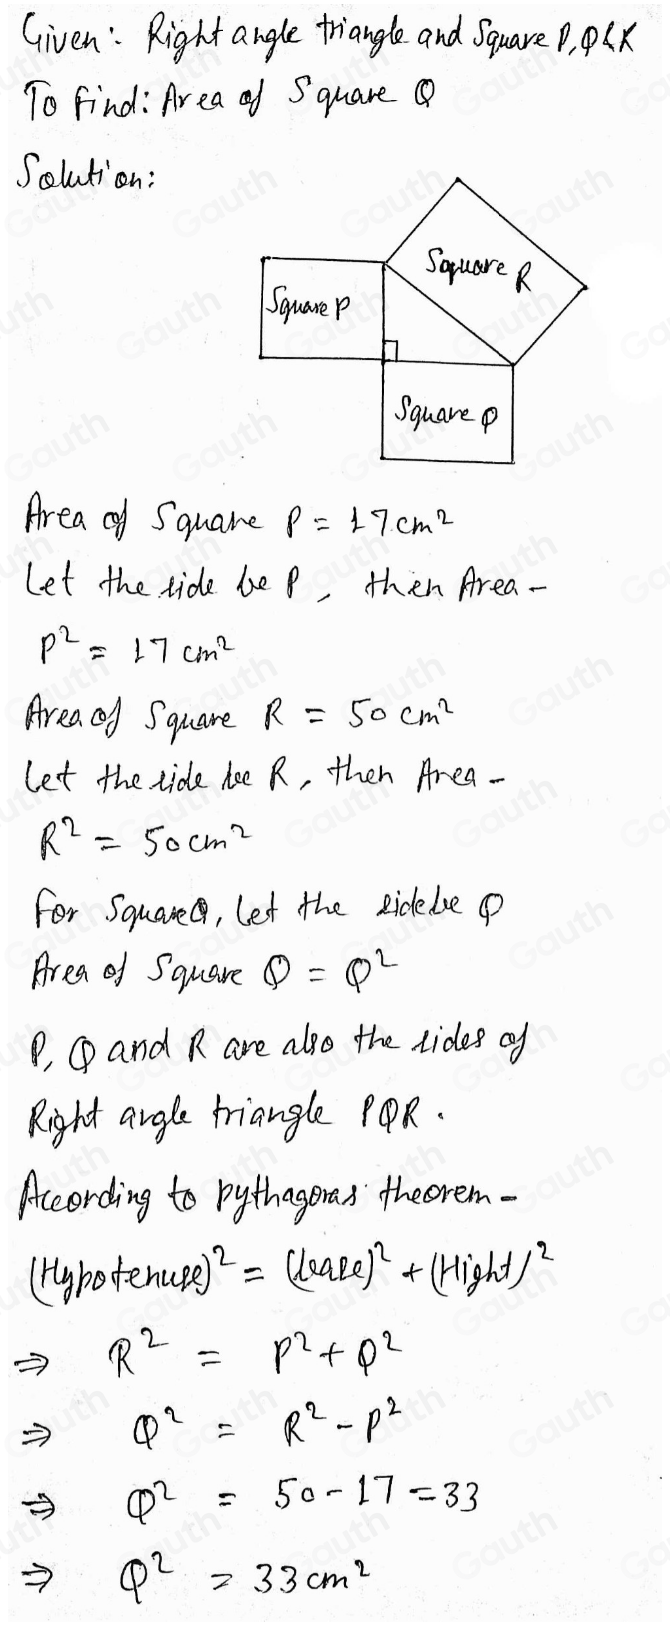 Given: Right angle triangle and Square P, Q & R
To find: Area of Square Q
Solution:
Square R
Square P
Square Q
Area of Square P = 17 cm²
Let the side be P, then Area -
P² = 17 cm²
Area of Square R = 50 cm²
Let the side be R, then Area -
R² = 50 cm²
For Square Q, Let the side be Q
Area of Square Q = Q²
P, Q and R are also the sides of
Right angle triangle PQR.
According to pythagoras theorem -
(Hypotenuse)² = (base)² + (Hight)²
⇒ R² = P² + Q²
⇒ Q² = R² - P²
⇒ Q² = 50 - 17 = 33
⇒ Q² = 33 cm²